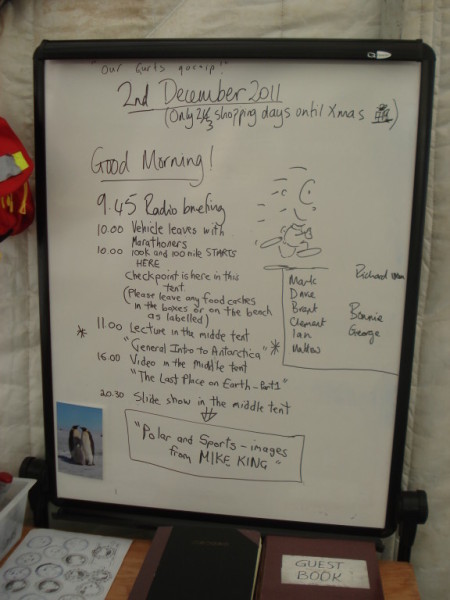 "Our Gurts gossip!"
2nd December 2011
(Only 23 shopping days until Xmas)
Good Morning!
9.45 Radio briefing
10.00 Vehicle leaves with
Marathoners
10.00 100k and 100mile STARTS
HERE
Checkpoint is here in this
tent.
(Please leave any food caches
in the boxes or on the bench
as labelled)
* 11.00 Lecture in the middle tent
"General Intro to Antarctica" *
15.00 Video in the middle tent
"The Last Place on Earth - Part 1"
20.30 Slide show in the middle tent
"Polar and Sports - images
from MIKE KING"
Mark
Dave
Brent
Clement
Ian
Richard
Bonnie
George
GUEST
BOOK